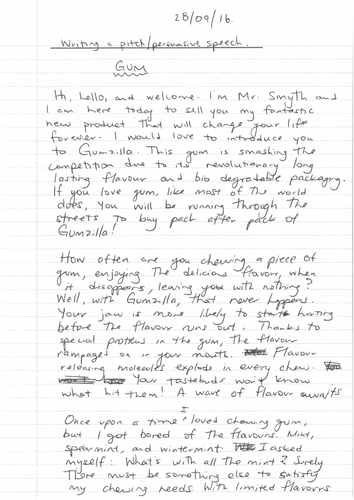 28/09/16.
Writing a pitch/persuasive speech.
GUM
Hi, hello, and welcome. I'm Mr. Smyth and
I am here today to sell you my fantastic
new product that will change your life
forever. I would love to introduce you
to Gumzilla. This gum is smashing the
competition due to its revolutionary long
lasting flavour and bio degradable packaging.
If you love gum, like most of the world
does, you will be running through the
streets to buy pack after pack of
Gumzilla!
How often are you chewing a piece of
gum, enjoying the delicious flavour, when
it disappears, leaving you with nothing?
Well, with Gumzilla, that never happens.
Your jaw is more likely to start hurting
before the flavour runs out. Thanks to
special proteins in the gum, the flavour
rampages on in your mouth. Flavour
releasing molecules explode in every chew.
Your tastebuds won't know
what hit them! A wave of flavour awaits.
Once upon a time I loved chewing gum,
but I got bored of the flavours. Mint,
spearmint, and wintermint. I asked
myself: What's with all the mint? Surely
there must be something else to satisfy
my chewing needs. With limited flavours